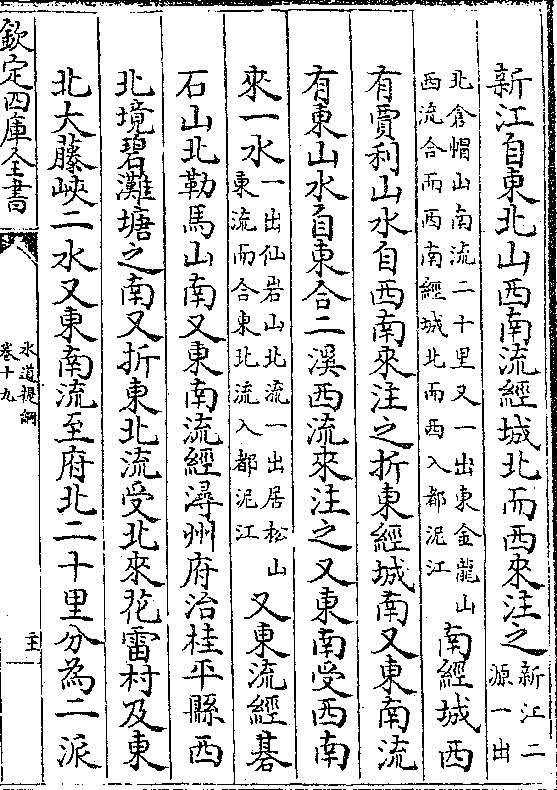 新江自東北山西南流經城北而西來注之新江二源一出
北倉帽山南流二十里又一出東金龍山西流合而西南經城北而西入都泥江南經城西
有賈利山水自西南來注之折東經城南又東南流
有東山水自東合二溪西流來注之又東南受西南
來一水一出仙岩山北流一出居松山東流而合東北流入都泥江又東流經碁
石山北勒馬山南又東南流經潯州府治桂平縣西
北境碧灘塘之南又折東北流受北來花雷村及東
北大藤峽二水又東南流至府北二十里分為二派
欽定四庫全書
水道提綱
卷十九